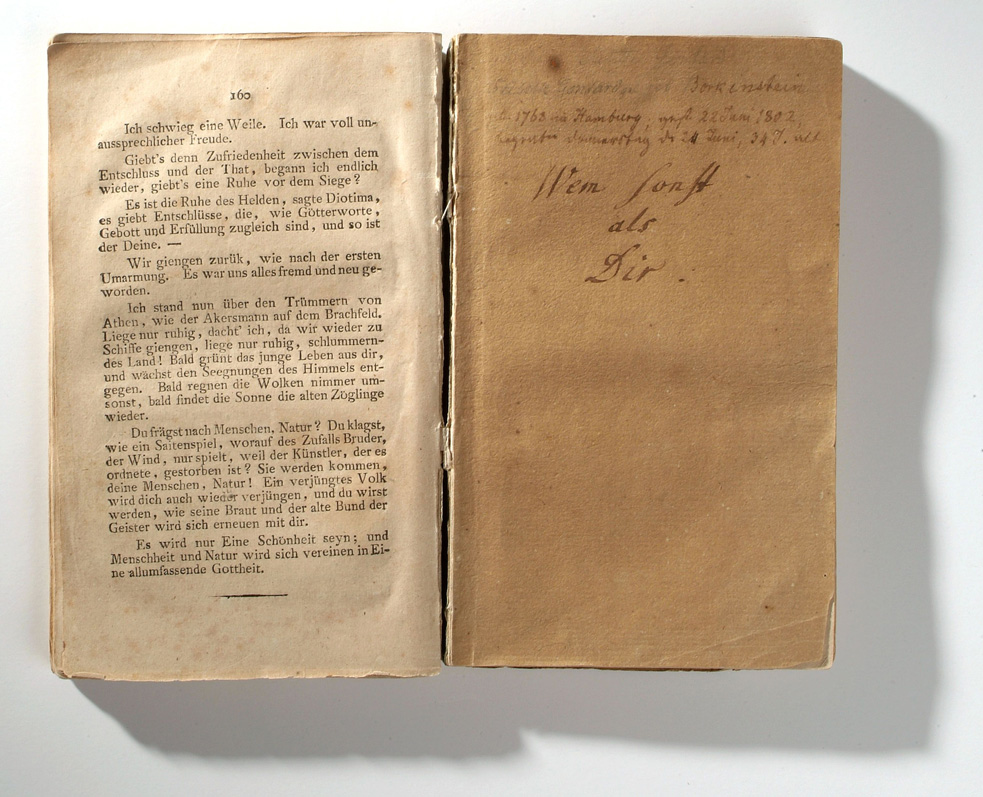 160
Ich schwieg eine Weile. Ich war voll un-
aussprechlicher Freude.
Giebt's denn Zufriedenheit zwischen dem
Entschluss und der That, begann ich endlich
wieder, giebt's eine Ruhe vor dem Siege?
Es ist die Ruhe des Helden, sagte Diotima,
es giebt Entschlüsse, die, wie Götterworte,
Gebott und Erfüllung zugleich sind, und so ist
der Deine. —
Wir giengen zurük, wie nach der ersten
Umarmung. Es war uns alles fremd und neu ge-
worden.
Ich stand nun über den Trümmern von
Athen, wie der Akersmann auf dem Brachfeld.
Liege nur ruhig, dacht' ich, da wir wieder zu
Schiffe giengen, liege nur ruhig, schlummern-
des Land! Bald grünt das junge Leben aus dir,
und wächst den Seegnungen des Himmels ent-
gegen. Bald regnen die Wolken nimmer um-
sonst, bald findet die Sonne die alten Zöglinge
wieder.
Du frägst nach Menschen, Natur? Du klagst,
wie ein Saitenspiel, worauf des Zufalls Bruder,
der Wind, nur spielt, weil der Künstler, der es
ordnete, gestorben ist? Sie werden kommen,
deine Menschen, Natur! Ein verjüngtes Volk
wird dich auch wieder verjüngen, und du wirst
werden, wie seine Braut und der alte Bund der
Geister wird sich erneuen mit dir.
Es wird nur Eine Schönheit seyn; und
Menschheit und Natur wird sich vereinen in Ei-
ne allumfassende Gottheit.
Borkenstein
1763 in Hamburg, 22 Juni 1802
24 Juni, 34 J. alt
Wem sonst
als
Dir.